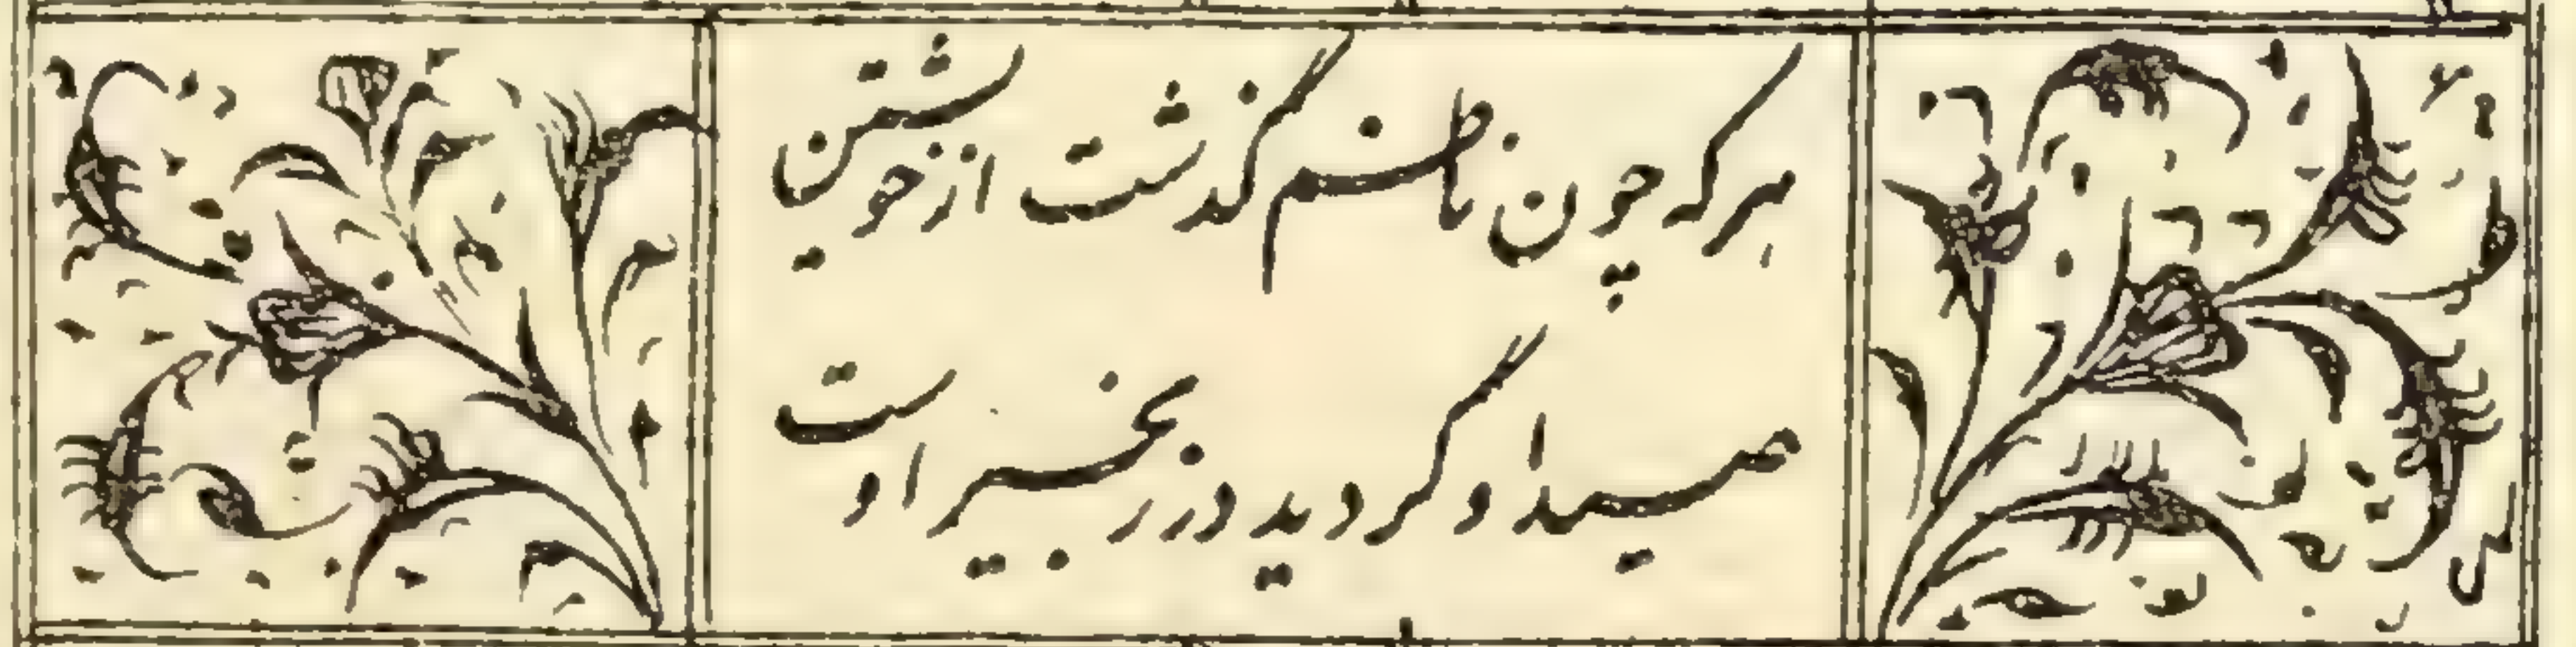 هرکه چون ناظم گذشت از خویشتن
صید او گردید در زنجیر اوست